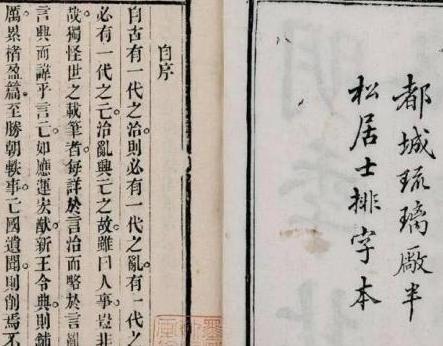 都城琉璃廠半
松居士排字本
自序
自古有一代之治則必有一代之亂有一代
必有一代之亡治亂興亡之故雖曰人事豈非
哉獨怪世之載筆者每詳於言治而略於言亂
言興而諱乎言亡如應運弘猷新王令典則鋪
厲累楮盈篇至勝朝軼事亡國遺聞則削焉不